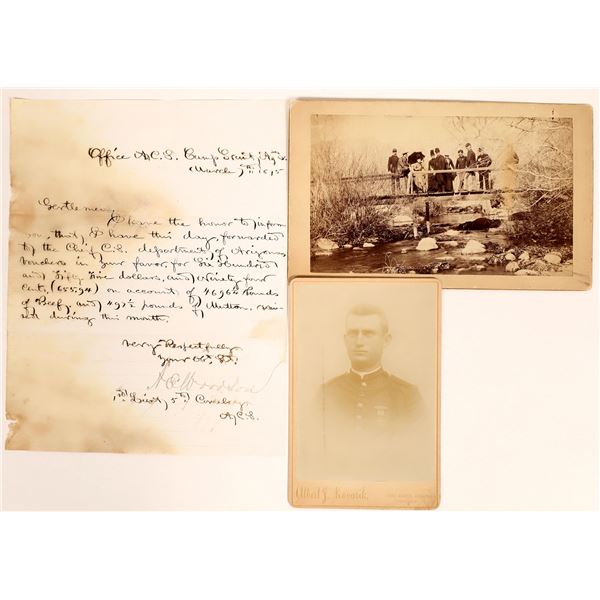 Office A.C.S. Camp Grant, A.T.
March 7th 1875
Gentlemen,
I have the honor to inform
you, that, I have this day, forwarded
to the Chief C.S. department of Arizona
Vouchers in your favor, for Six Hundred
and Fifty Five dollars, and Ninety four
Cents, (655.94) on account of 4696½ Pounds
of Beef, and 497½ pounds of Mutton,
during this month.
Very Respectfully
Your Obt. St.
A E Woodson
1st Lieut, 5th Cavalry
A.C.S.
Albert J. Kovarik.